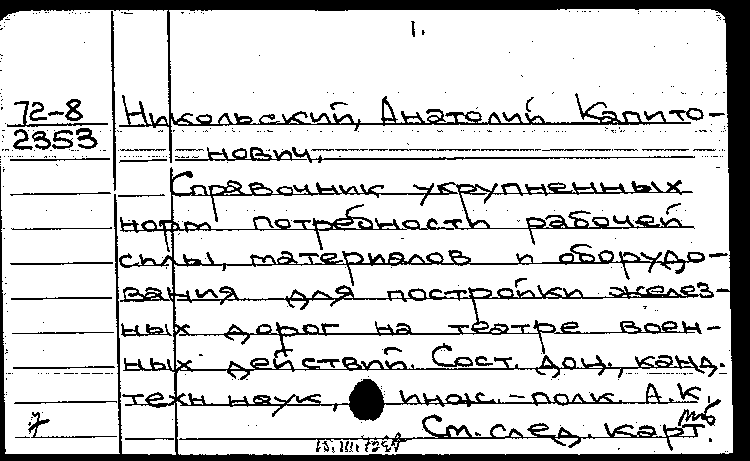 1.
72-8
2353
Никольский, Анатолий Капито-
нович.
Справочник укрупненных
норм потребности рабочей
силы, материалов и оборудо-
вания для постройки желез-
ных дорог на театре воен-
ных действий. Сост. доц., канд.
техн. наук, инж.-полк. А.К.
См. след. карт.